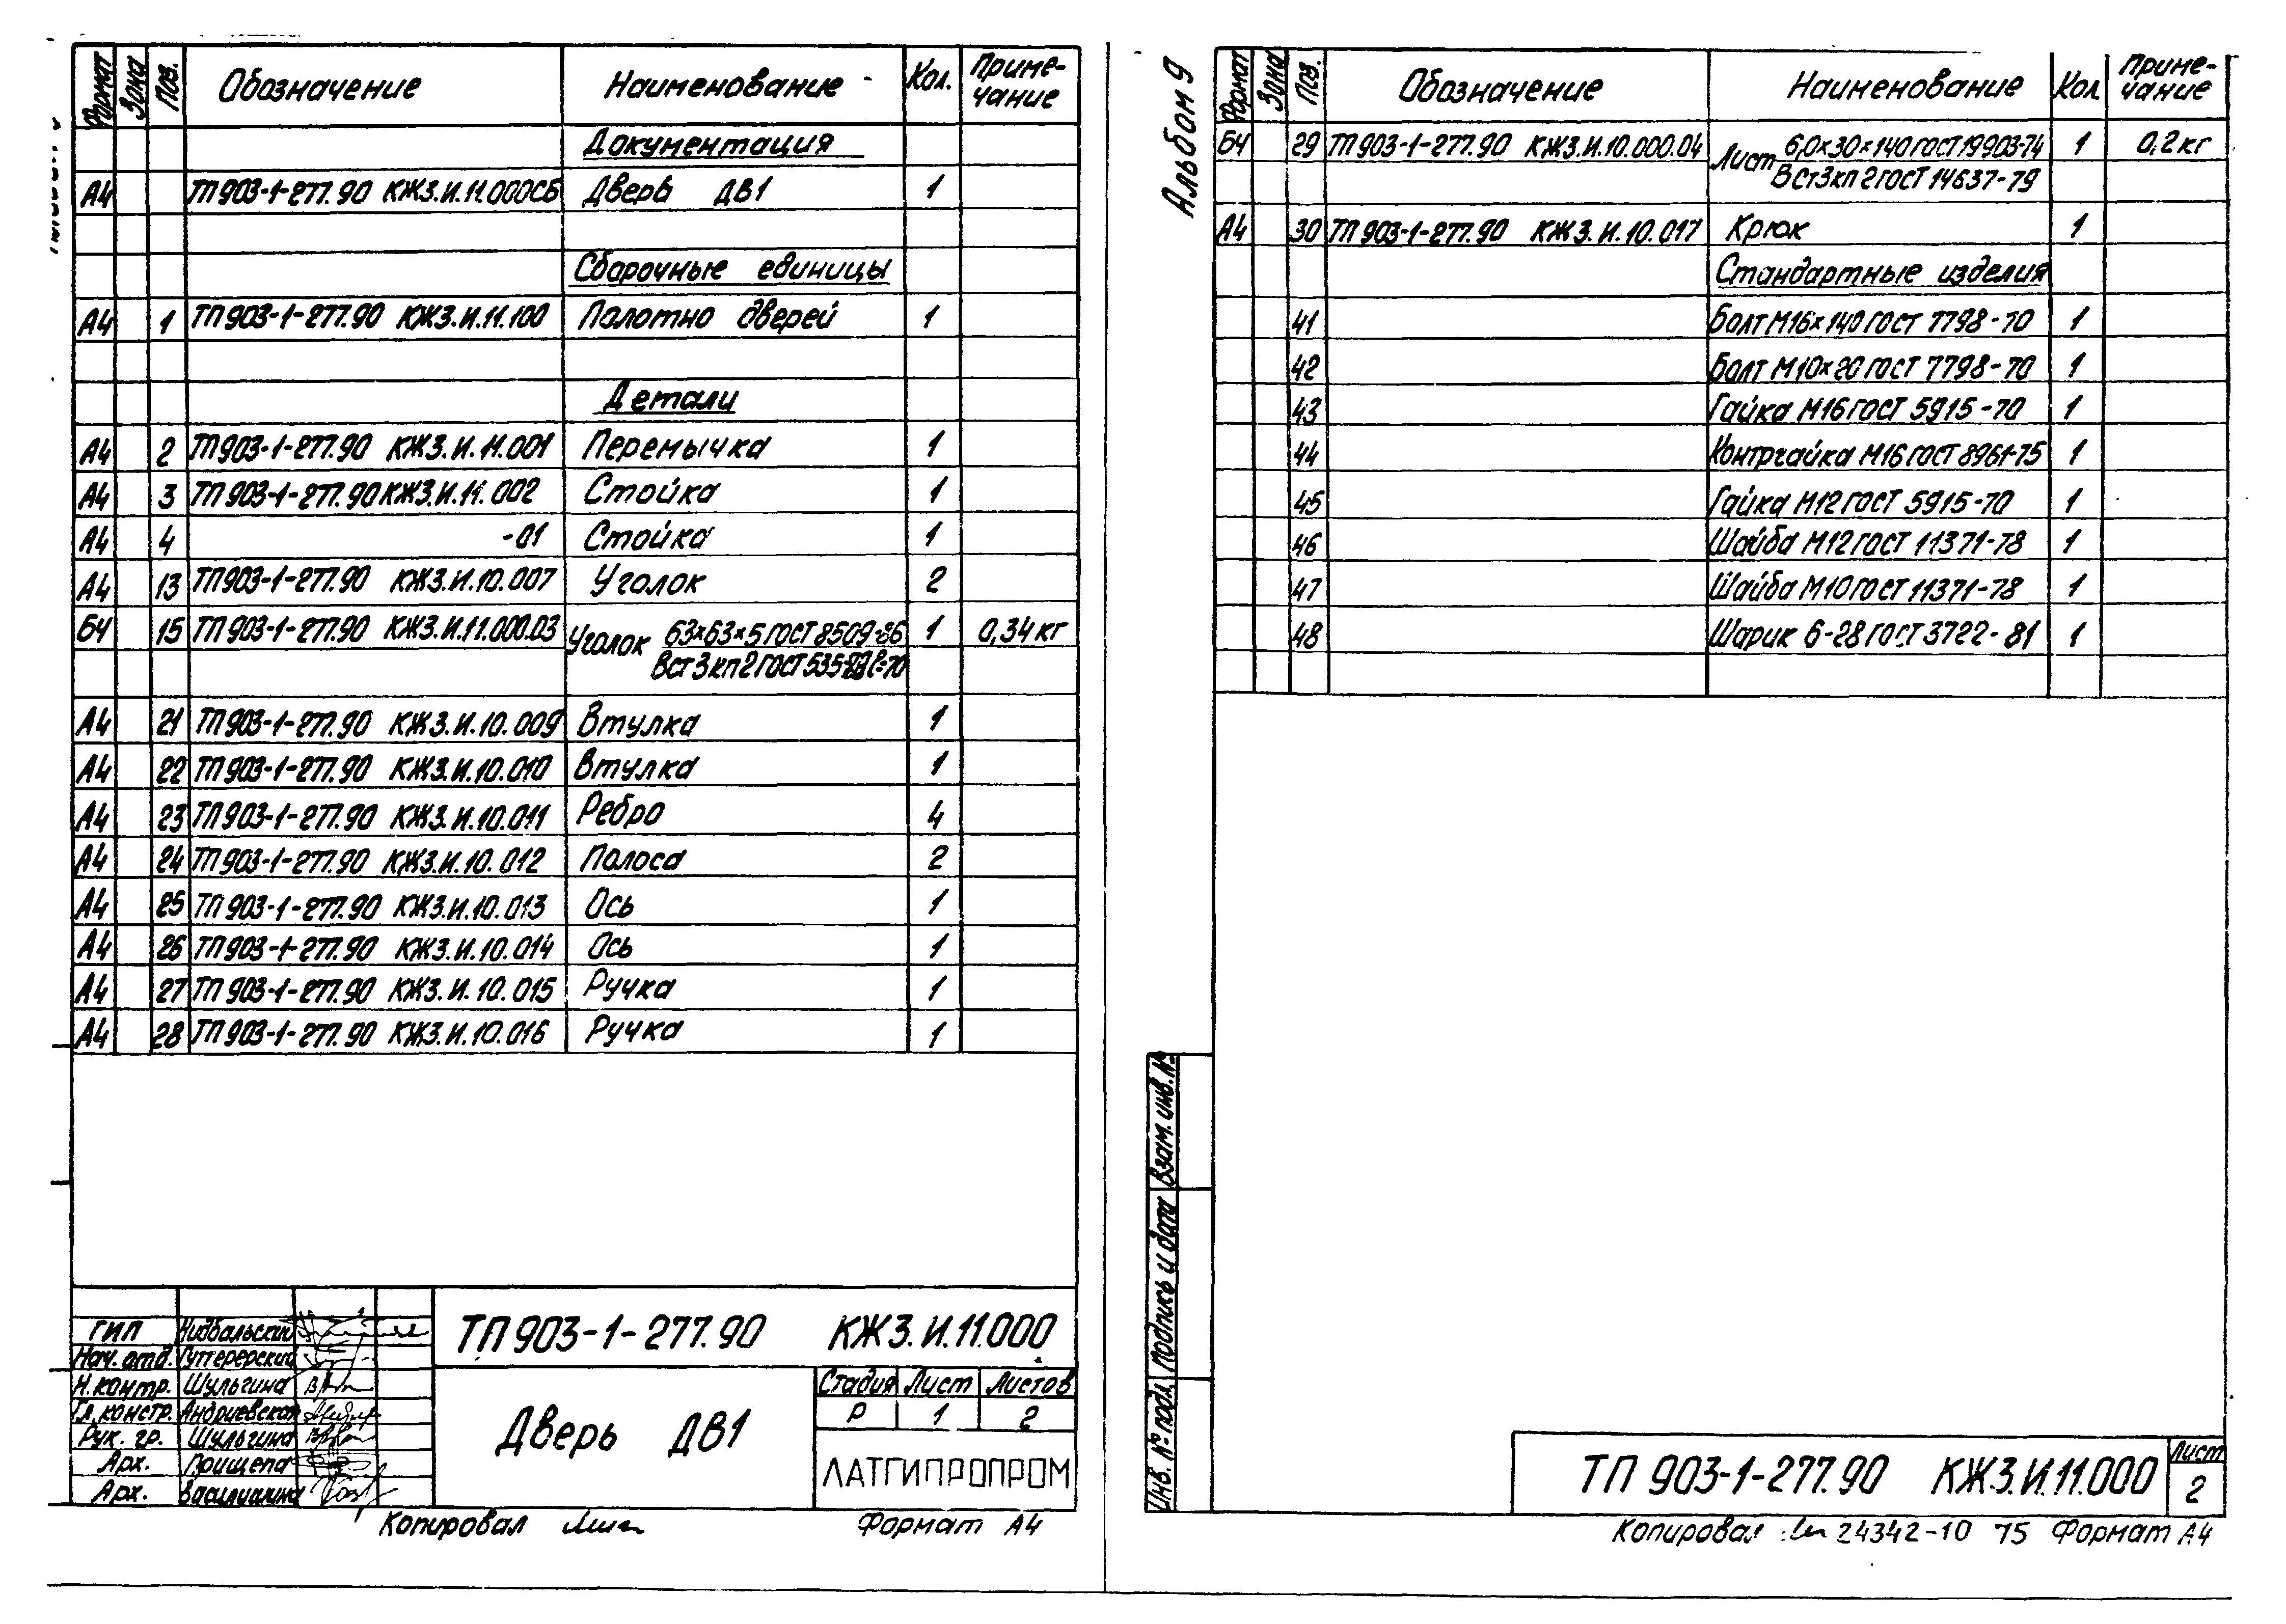 Формат Зона Поз. Обозначение Наименование Кол. Приме-чание
Документация
А4 ТП903-1-277.90 КЖ3.И.11.000СБ Дверь ДВ1 1
Сборочные единицы
А4 1 ТП903-1-277.90 КЖ3.И.11.100 Полотно дверей 1
Детали
А4 2 ТП903-1-277.90 КЖ3.И.11.001 Перемычка 1
А4 3 ТП903-1-277.90 КЖ3.И.11.002 Стойка 1
А4 4 -01 Стойка 1
А4 13 ТП903-1-277.90 КЖ3.И.10.007 Уголок 2
БЧ 15 ТП903-1-277.90 КЖ3.И.11.000.03 Уголок 63×63×5 ГОСТ 8509-86 1 0,34 кг
ВСт3кп2 ГОСТ 535-
А4 21 ТП903-1-277.90 КЖ3.И.10.009 Втулка 1
А4 22 ТП903-1-277.90 КЖ3.И.10.010 Втулка 1
А4 23 ТП903-1-277.90 КЖ3.И.10.011 Ребро 4
А4 24 ТП903-1-277.90 КЖ3.И.10.012 Полоса 2
А4 25 ТП903-1-277.90 КЖ3.И.10.013 Ось 1
А4 26 ТП903-1-277.90 КЖ3.И.10.014 Ось 1
А4 27 ТП903-1-277.90 КЖ3.И.10.015 Ручка 1
А4 28 ТП903-1-277.90 КЖ3.И.10.016 Ручка 1
ТП903-1-277.90 КЖ3.И.11.000
ГИП
Нач. отд.
Н. контр. Шульгина
Гл. констр. Андриевская
Рук. гр. Шульгина
Арх. Прищепа
Арх.
Дверь ДВ1
Стадия Лист Листов
Р 1 2
ЛАТГИПРОПРОМ
Копировал Формат А4
Альбом 9
Формат Зона Поз. Обозначение Наименование Кол Приме-чание
БЧ 29 ТП903-1-277.90 КЖ3.И.10.000.04 Лист 6,0×30×140 ГОСТ 19903-74 1 0,2 кг
ВСт3кп2 ГОСТ 14637-79
А4 30 ТП903-1-277.90 КЖ3.И.10.017 Крюк 1
Стандартные изделия
41 Болт М16×140 ГОСТ 7798-70 1
42 Болт М10×20 ГОСТ 7798-70 1
43 Гайка М16 ГОСТ 5915-70 1
44 Контргайка М16 ГОСТ 8961-75 1
45 Гайка М12 ГОСТ 5915-70 1
46 Шайба М12 ГОСТ 11371-78 1
47 Шайба М10 ГОСТ 11371-78 1
48 Шарик 6-28 ГОСТ 3722-81 1
Инв. № подл. Подпись и дата Взам. инв. №
ТП 903-1-277.90 КЖ3.И.11.000
Лист
2
Копировал 24342-10 75 Формат А4